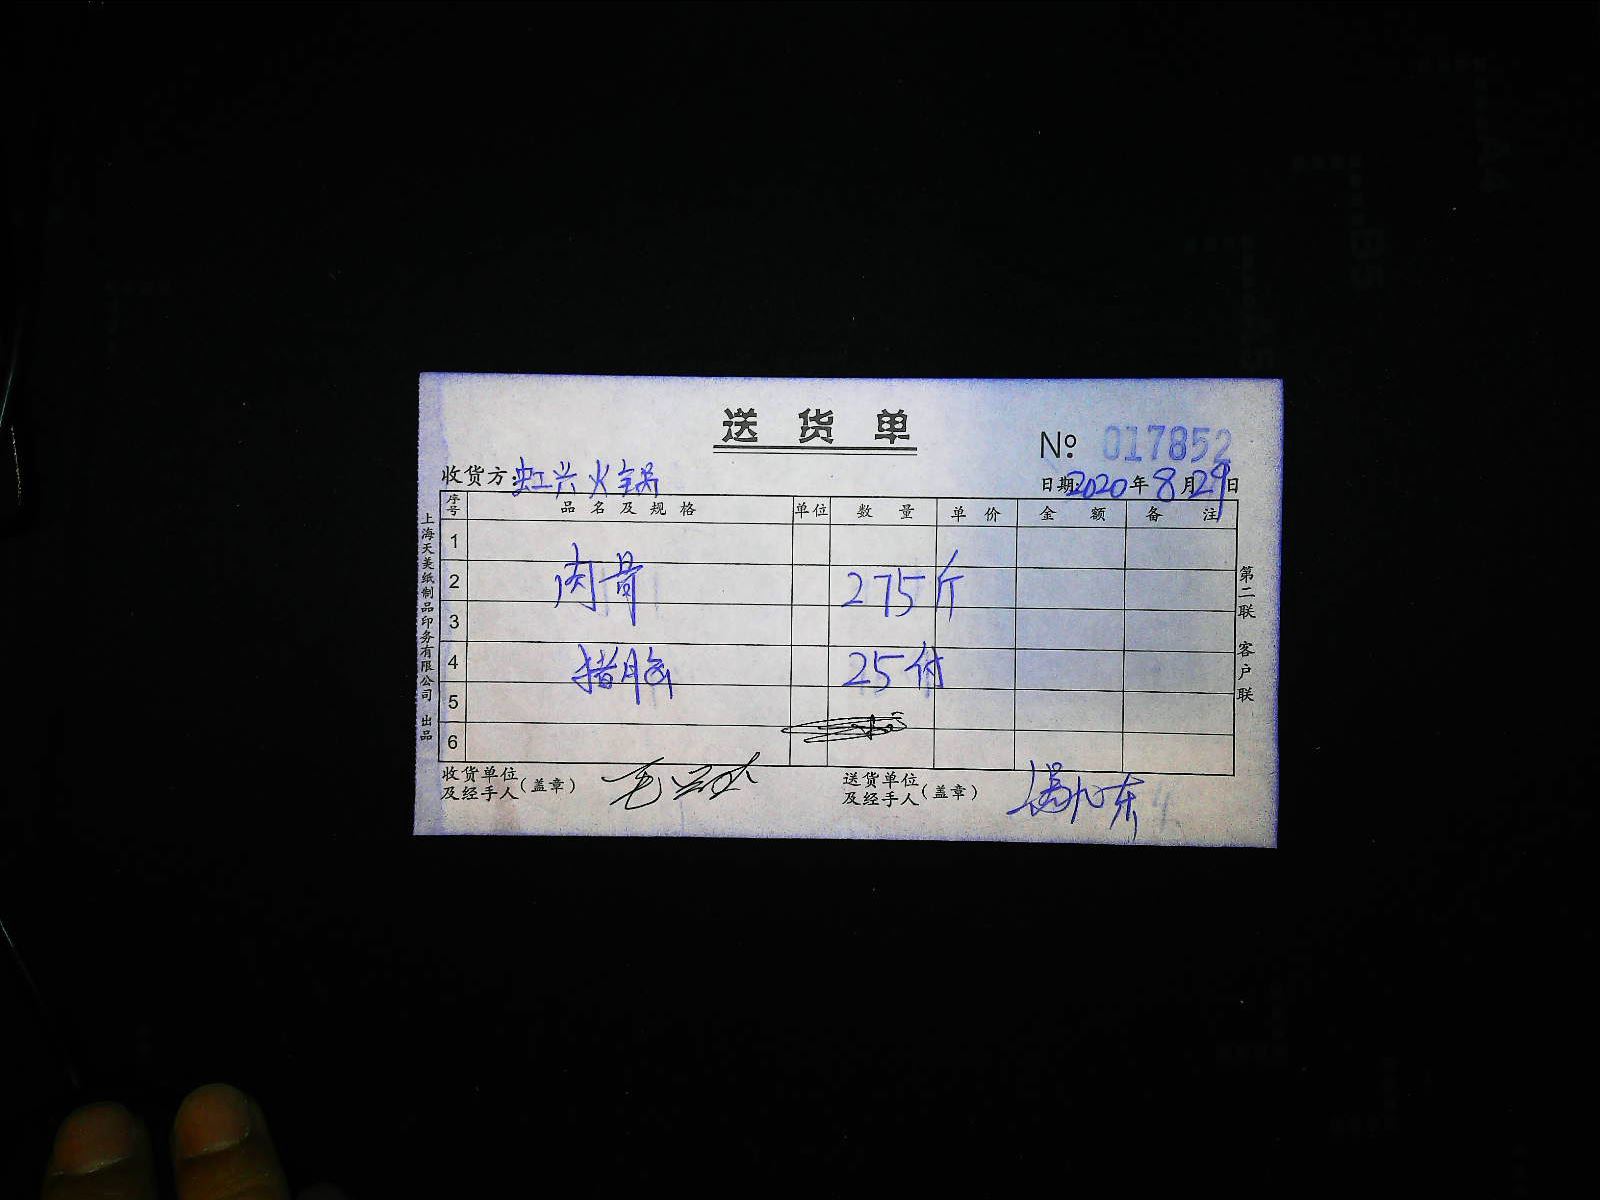 送货单
No: 017852
收货方: 虹兴火锅
日期: 2020年8月29日
序号 品名及规格 单位 数量 单价 金额 备注
1
2 肉骨 275斤
3
4 猪脑 25付
5
6
收货单位及经手人(盖章)
送货单位及经手人(盖章)
上海天美纸制品印务有限公司 出品
第二联 客户联
B5
A4